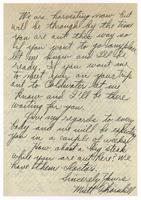 We are harvesting now but
will be through by the time
you are out this way so
if you want to go
let me know and I'll be
ready. If you want me
to meet you on your trip
out to Coldwater let me
know and I'll be there
waiting for you.
Give my regards to every
body and we will be
you in a couple of weeks.
How about a big steak
while you are out here? We
have them - Doctor.
Sincerely Yours
Matt